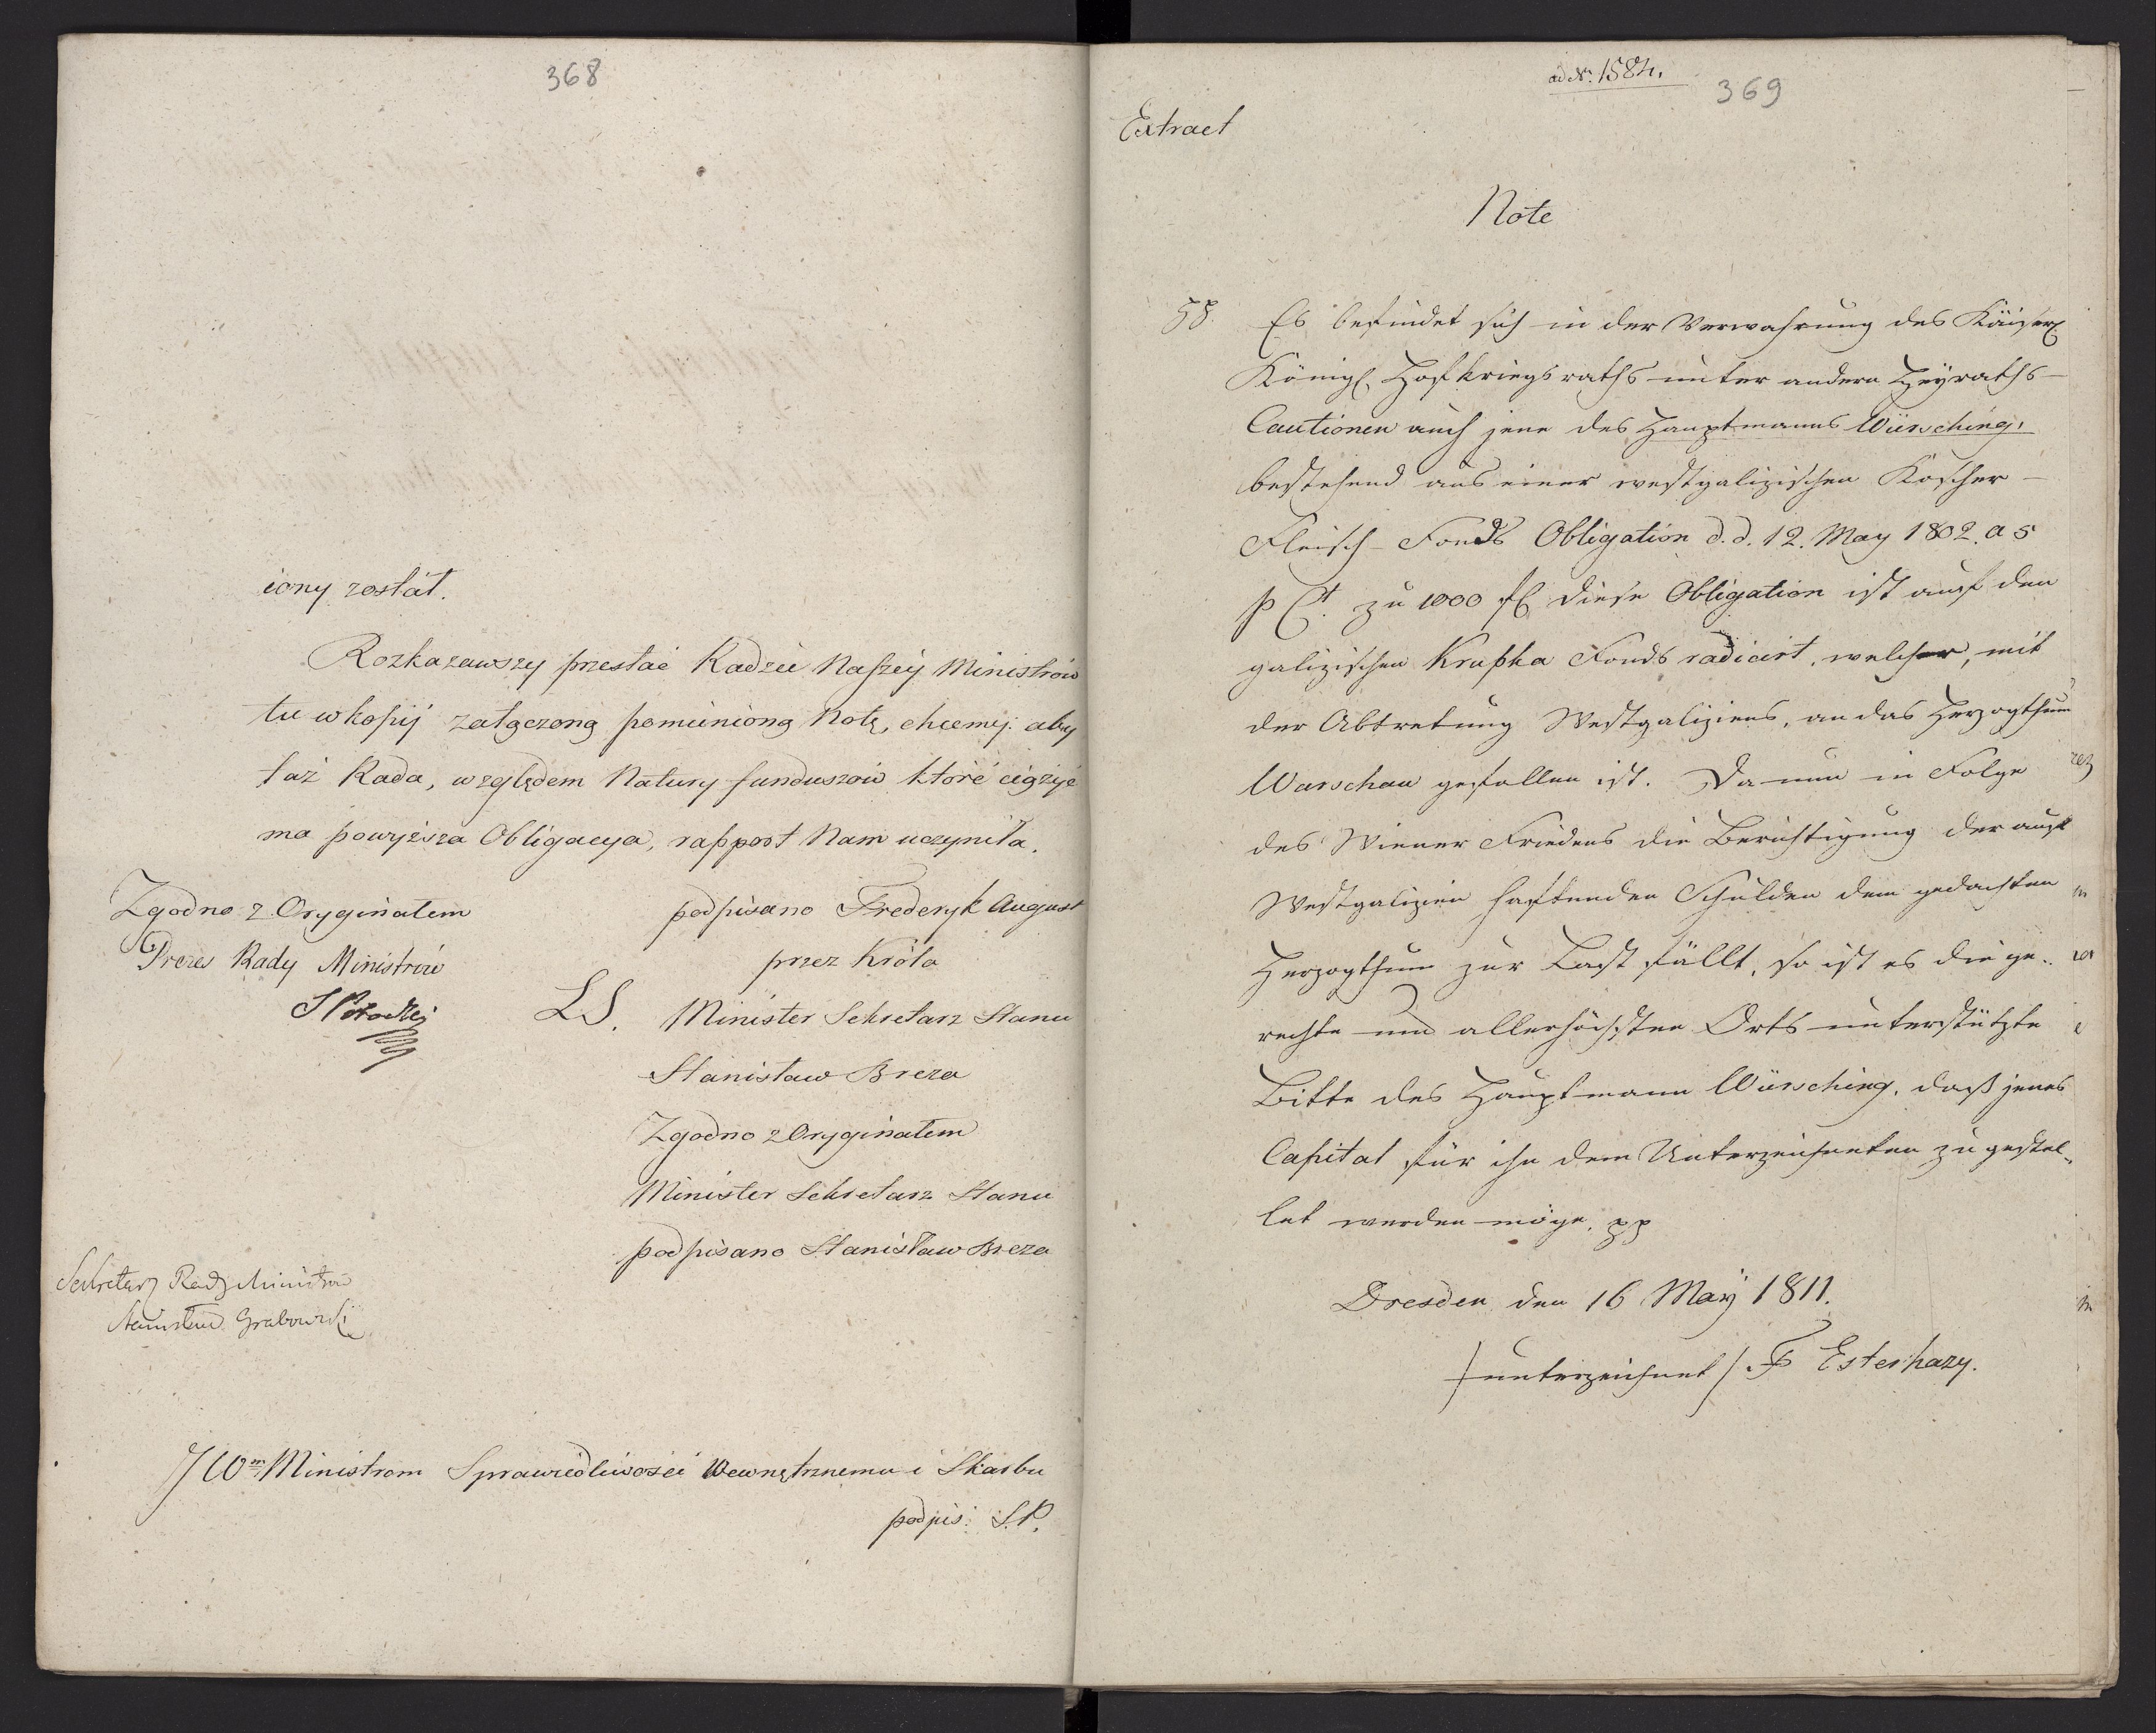 368
iony został.
Rozkazawszy przesłać Radzie Naszey Ministrów
tu w kopij załączoną pomienioną Notę, chcemy: aby
taż Rada, względem Natury funduszów które ciążyć
ma powyższa Obligacya, rapport Nam uczyniła.
Zgodno z Oryginałem
Prezes Rady Ministrów
S Potocki
podpisano Frederyk August
przez Króla
LS. Minister Sekretarz Stanu
Stanisław Breza
Zgodno z Oryginałem
Minister Sekretarz Stanu
podpisano Stanisław Breza
Sekretarz Rady Ministrów
Stanisław Grabowski
JWm Ministrom Sprawiedliwości Wewnętrznemu i Skarbu
podpis: S.P.
ad Nr. 1584.
369
Extract
Note
58. Es befindet sich in der Verwahrung des Kaiserl
Königl. Hofkriegsraths unter andern Heyraths-
Cautionen auch jene des Hauptmanns Würsching,
bestehend aus einer westgalizischen Koscher-
Fleisch-Fonds Obligation d.d. 12. May 1802. a 5
p Ct. zu 1000 fl diese Obligation ist auf den
galizischen Krupka Fonds radicirt, welcher, mit
der Abtretung Westgaliziens, an das Herzogthum
Warschau gefallen ist. Da nun in Folge
des Wiener Friedens die Berichtigung der auf
Westgalizien haftenden Schulden dem gedachten
Herzogthum zur Last fällt, so ist es die ge-
rechte und allerhöchsten Orts unterstützte
Bitte des Hauptmann Würsching, daß jenes
Capital für ihn dem Unterzeichneten zugestel-
let werden möge. pp
Dresden den 16 May 1811.
/unterzeichnet/ F Esterhazy.